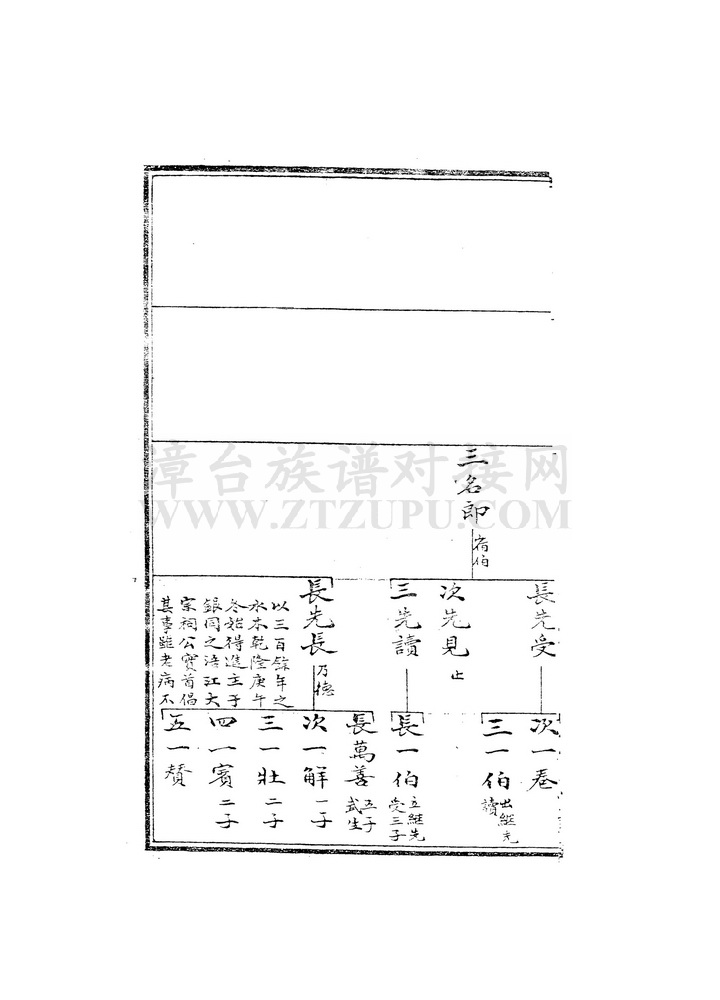 漳台族谱对接网
WWW.ZTZUPU.COM
三名郎
有伯
長先受
次先見 止
三先讀
長先長
乃德
以三百餘年之
水木乾隆庚午
冬始得進主于
銀同之浯江大
宗祠公實首倡
其事雖老病不
次一卷
三一伯 出継先
讀
長一伯 立継先
受三子
長萬善 五子
武生
次一解 一子
三一壯 二子
四一賓 二子
五一贊